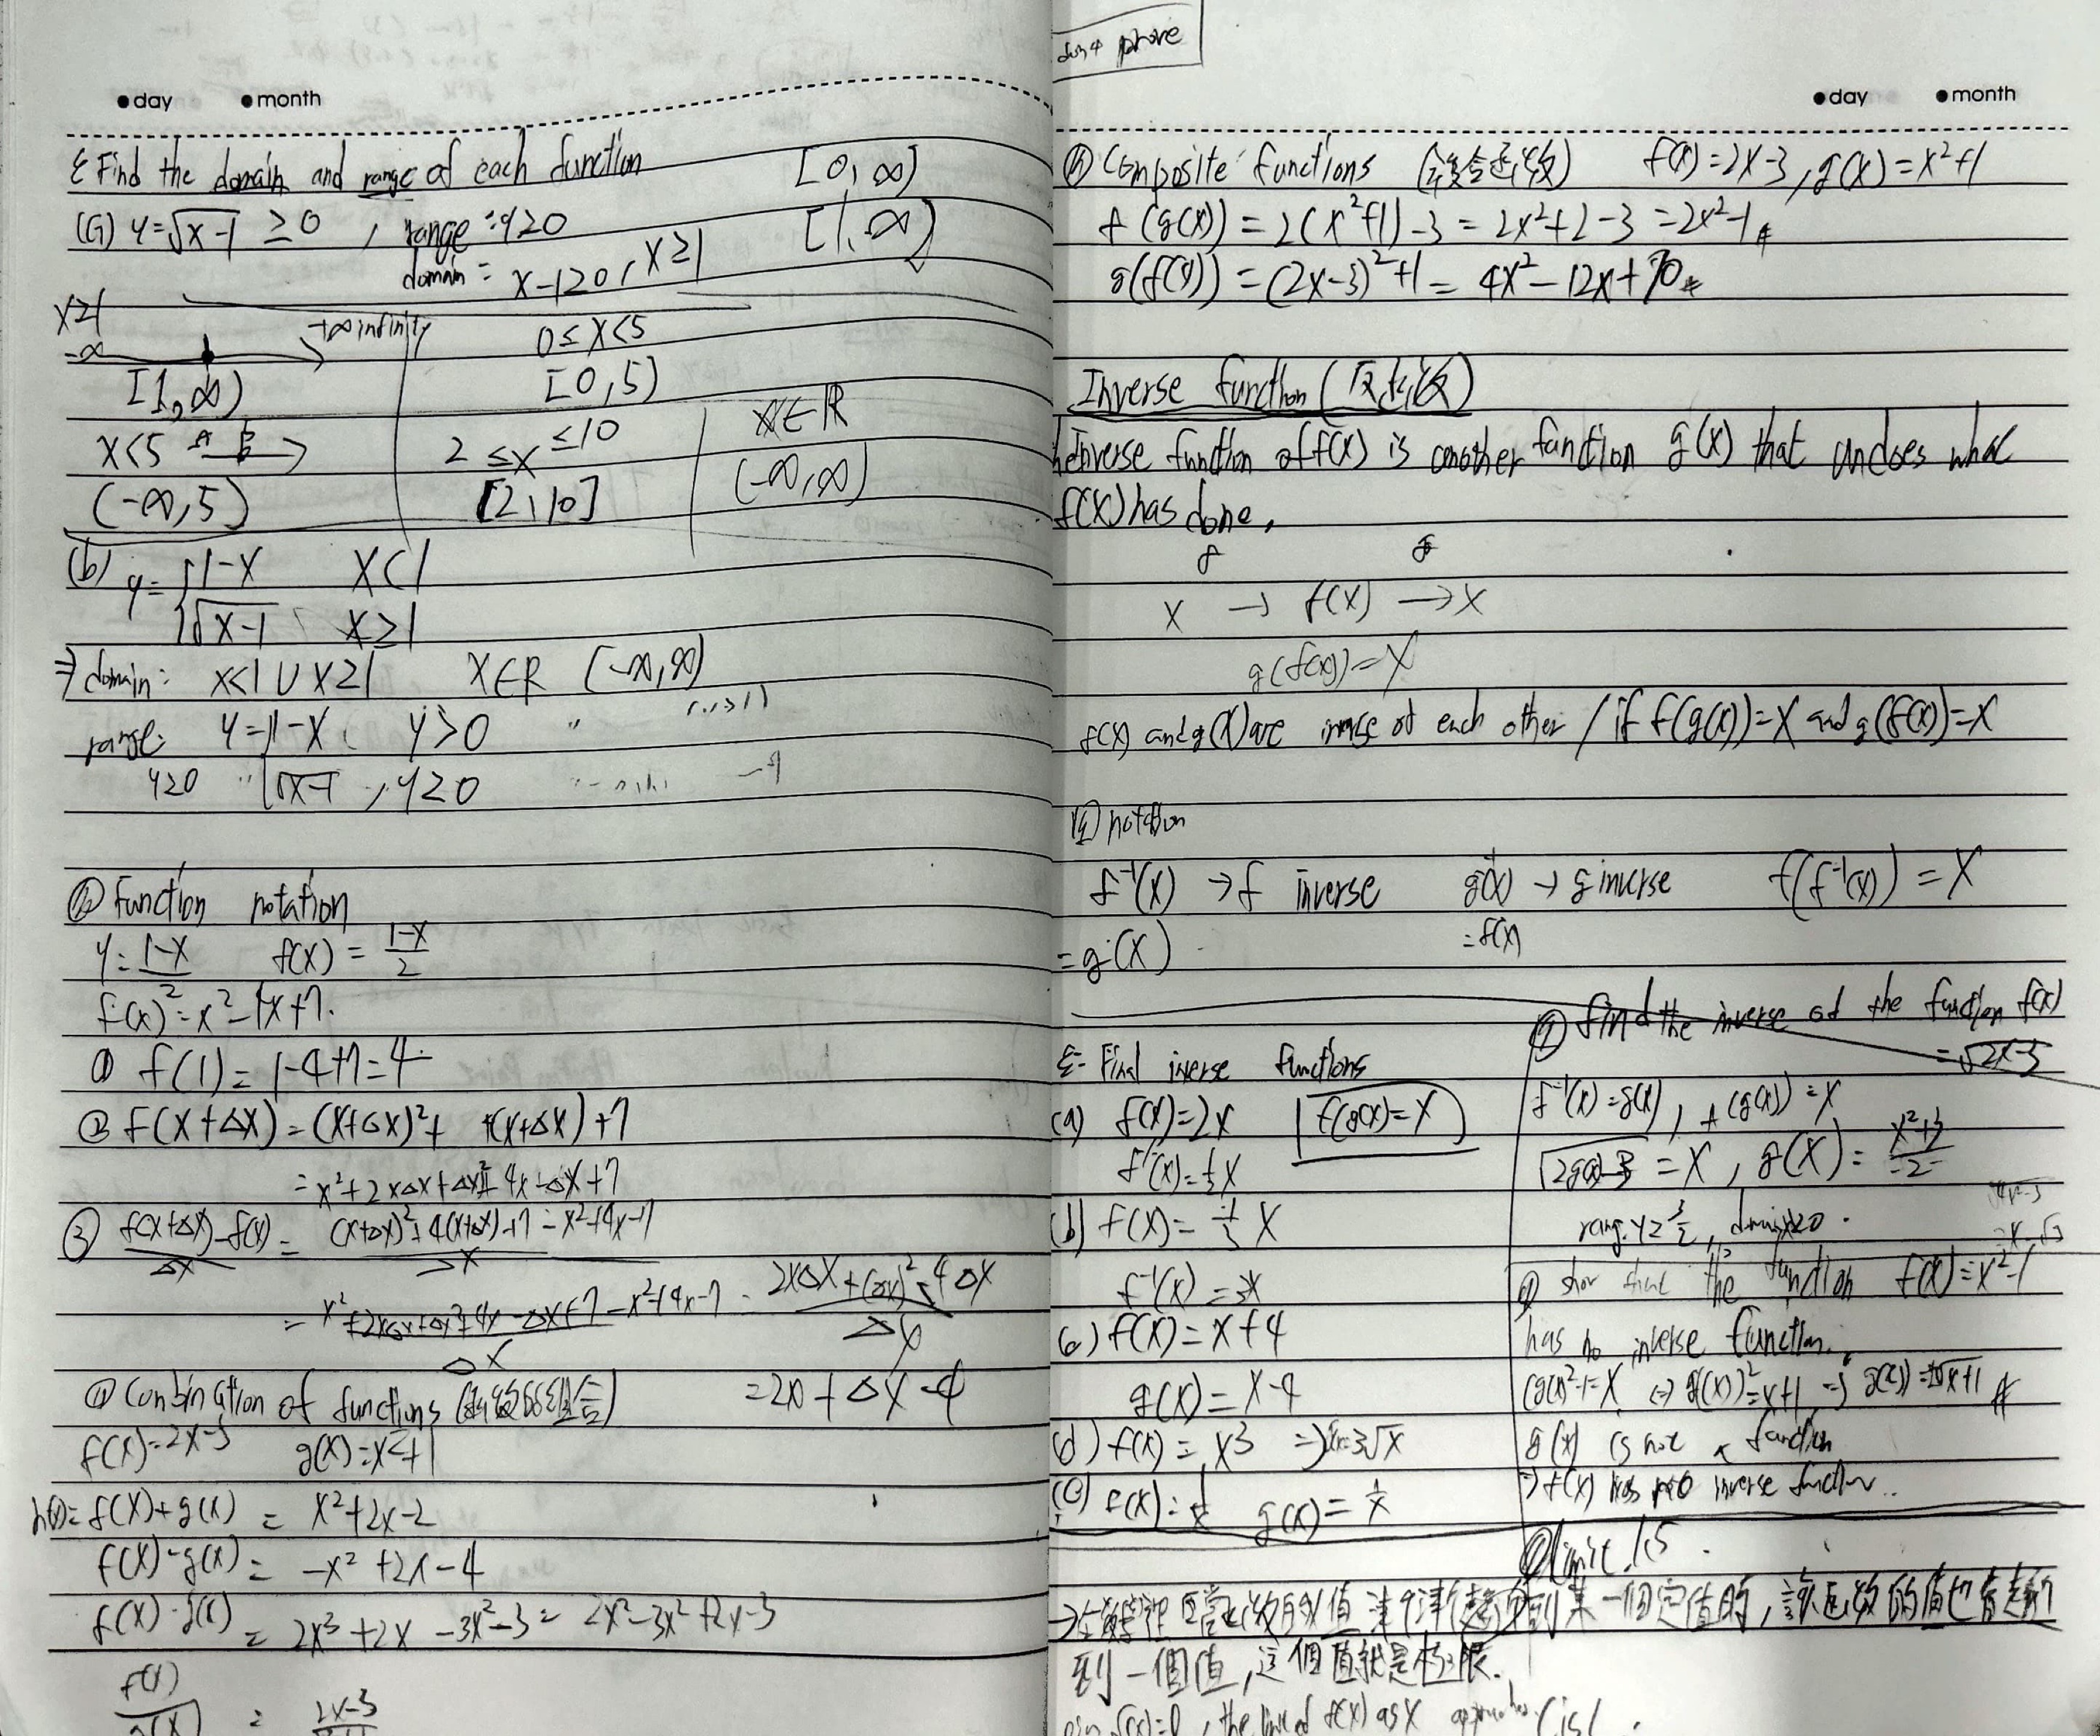 day month
E Find the domain and range of each function [0, ∞)
(a) y=√x-1 ≥0 , range: y≥0 [1, ∞)
domain: x-1≥0, x≥1
x≥1
-∞ +∞ infinity 0≤x<5
[1, ∞) [0,5)
x<5 2≤x≤10 x∈R
(-∞,5) [2,10] (-∞,∞)
(b) y= { 1-x x<1
√x-1 x≥1
⇒ domain: x<1 ∪ x≥1 x∈R (-∞,∞)
range: y=1-x y>0
y≥0 √x-1 , y≥0
function notation
y=1-x/2 f(x)=1-x/2
f(x)=x²-4x+7.
① f(1)=1-4+7=4
② f(x+Δx)=(x+Δx)²+ 4(x+Δx)+7
=x²+2xΔx+Δx² 4x-Δx+7
③ f(x+Δx)-f(x)/Δx = (x+Δx)² 4(x+Δx)+7-x²+4x-7/Δx
= x²+2xΔx+Δx² 4x-Δx+7-x²+4x-7/Δx = 2xΔx+(Δx)²-4Δx/Δx
④ Combination of functions (函數的組合) =2x+Δx-4
f(x)=2x-3 g(x)=x²+1
h(x)=f(x)+g(x) = x²+2x-2
f(x)-g(x)= -x²+2x-4
f(x)·g(x) = 2x³+2x-3x²-3= 2x³-3x²+2x-3
f(x)/g(x) = 2x-3
phore
day month
Composite functions (合函數) f(x)=2x-3, g(x)=x²+1
f(g(x))=2(x²+1)-3=2x²+2-3=2x²-1
g(f(x))=(2x-3)²+1=4x²-12x+10
Inverse function (反函數)
Inverse function of f(x) is another function g(x) that undoes what
f(x) has done.
f g
x → f(x) → x
g(f(x))=x
f(x) and g(x) are inverse of each other / if f(g(x))=x and g(f(x))=x
notation
f⁻¹(x) → f inverse g⁻¹(x) → g inverse f(f⁻¹(x))=x
=g(x) =f(x)
E- Find inverse functions
(a) f(x)=2x f(g(x))=x
f⁻¹(x)=½x
(b) f(x)=⅓x
f⁻¹(x)=3x
(c) f(x)=x+4
g(x)=x-4
(d) f(x)=x³ ⇒ ³√x
(e) f(x)=1/x g(x)=1/x
find the inverse of the function f(x)
=√2x-3
f⁻¹(x)=g(x), f(g(x))=x
√2g(x)-3 =x, g(x)=x²+3/2
range y≥3/2, domain x≥0.
show that the function f(x)=x²-1
has no inverse function.
(g(x))²-1=x ⇔ (g(x))²=x+1 ⇒ g(x)=±√x+1
g(x) is not a function
⇒ f(x) has no inverse function..
limit 1.5
到一個值, 這個值就是極限.
the limit of f(x) as x approaches